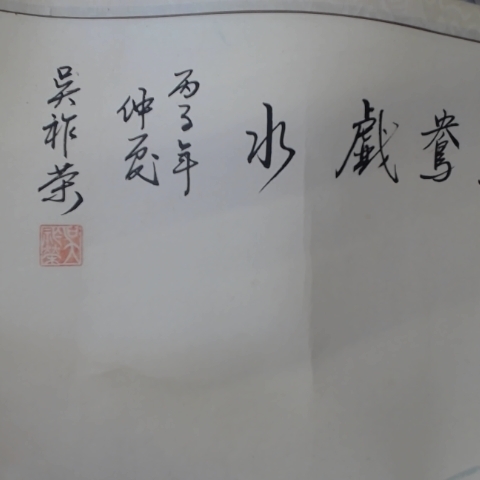 鴦戲水
丙子年
仲夏
吳祚荣